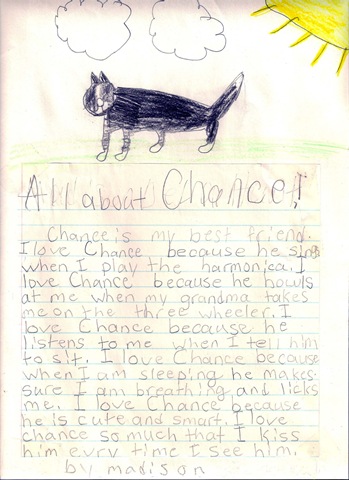 All about Chance!!
Chance is my best friend.
I love Chance because he sings
when I play the harmonica. I
love Chance because he howls
at me when my grandma takes
me on the three wheeler. I
love Chance because he
listens to me when I tell him
to sit. I love Chance because
when I am sleeping he makes
sure I am breathing and licks
me. I love Chance because
he is cute and smart. I love
chance so much that I kiss
him evry time I see him.
by madison